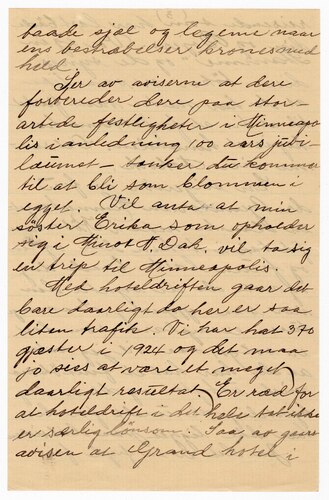 baade sjæl og legeme naar
ens bestræbelser krones med
held.
Ser av aviserne at dere
forbereder dere paa stor-
artede festligheter i Minneapo-
lis i anledning 100 aars jubi-
læumet – tænker du kommer
til at bli som blommen i
egget. Vil anta at min
søster Erika som opholder
sig i Minot N. Dak. vil ta sig
en trip til Minneapolis.
Med hoteldriften gaar det
bare daarligt da her er saa
liten trafik. Vi har hat 370
gjæster i 1924 og det maa
jo sies at være et meget
daarligt resultat. Er ræd for
at hoteldrift i det hele tat ikke
er særlig lønsom. Saa av
avisen at Grand hotel i